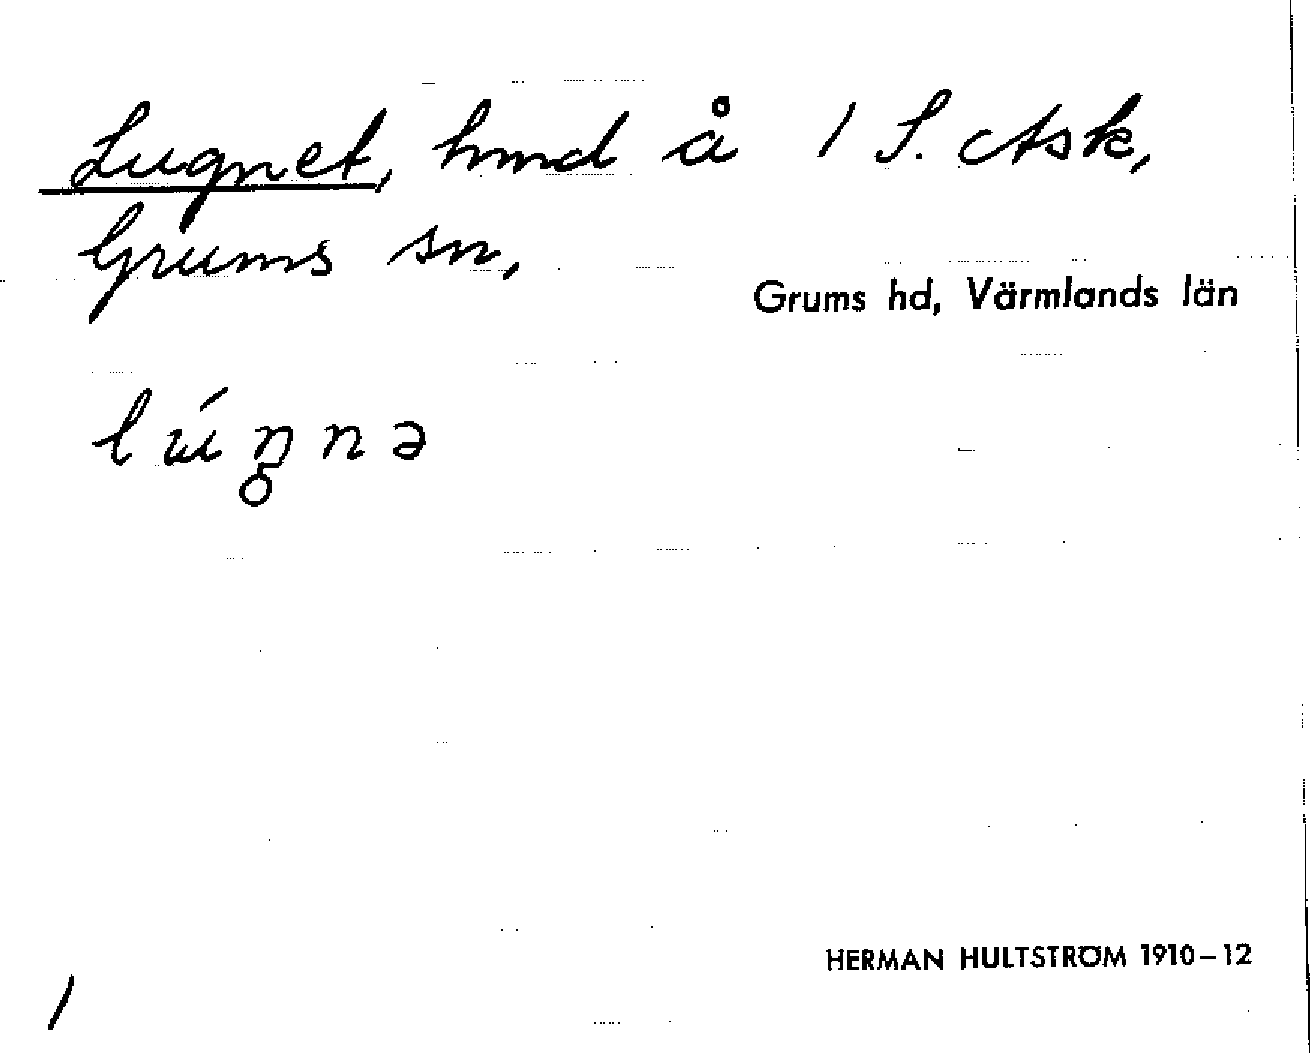 Lugnet, hmd å 1 S. Ask,
Grums sn,
Grums hd, Värmlands län
lúŋnə
HERMAN HULTSTRÖM 1910–12
1